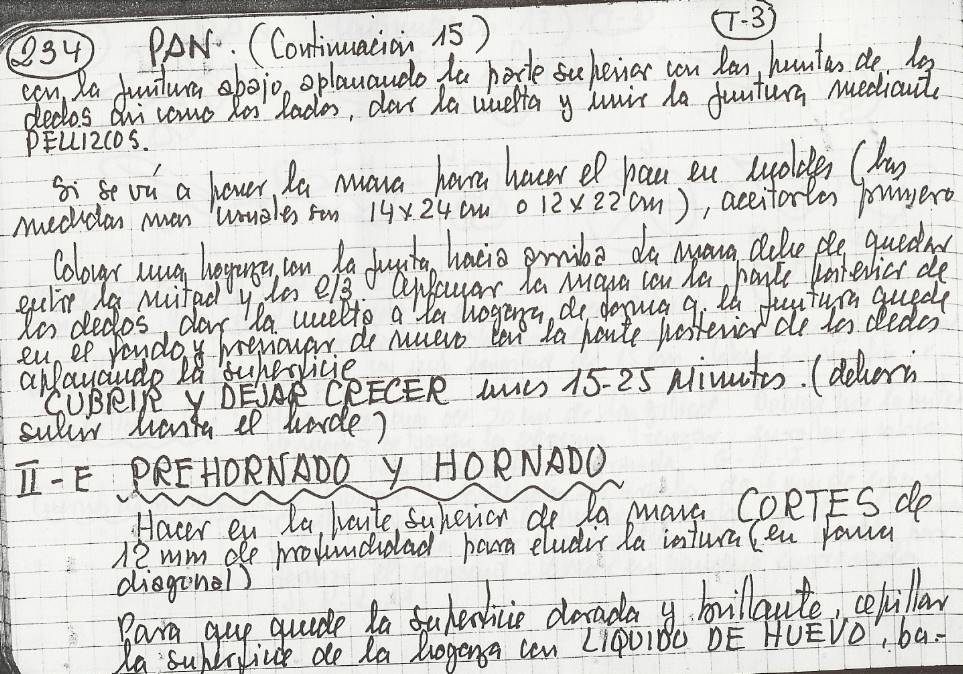 234 PAN. (Continuación 15) T-3
con la juntura abajo, aplanando la parte superior con las puntas de los
dedos asi como los lados, dar la vuelta y unir la juntura mediante
PELLIZCOS.
Si se vá a poner la masa para hacer el pan en moldes (las
medidas mas usuales son 14x24 cm o 12x22 cm), aceitarlos primero
Colocar una hogaza, con la junta hacia arriba la masa debe de quedar
entre la mitad y los 2/3. Aplanar la masa con la parte posterior de
los dedos, dar la vuelta a la hogaza, de forma q. la juntura quede
en el fondo y presionar de nuevo con la parte posterior de los dedos
aplanando la superficie
CUBRIR Y DEJAR CRECER unos 15-25 Minutos. (deberá
subir hasta el borde)
II-E PREHORNADO Y HORNADO
Hacer en la parte superior de la masa CORTES de
12 mm de profundidad para eludir la (en forma
diagonal)
Para que quede la superficie dorada y brillante, cepillar
la superficie de la hogaza con LIQUIDO DE HUEVO, ba-